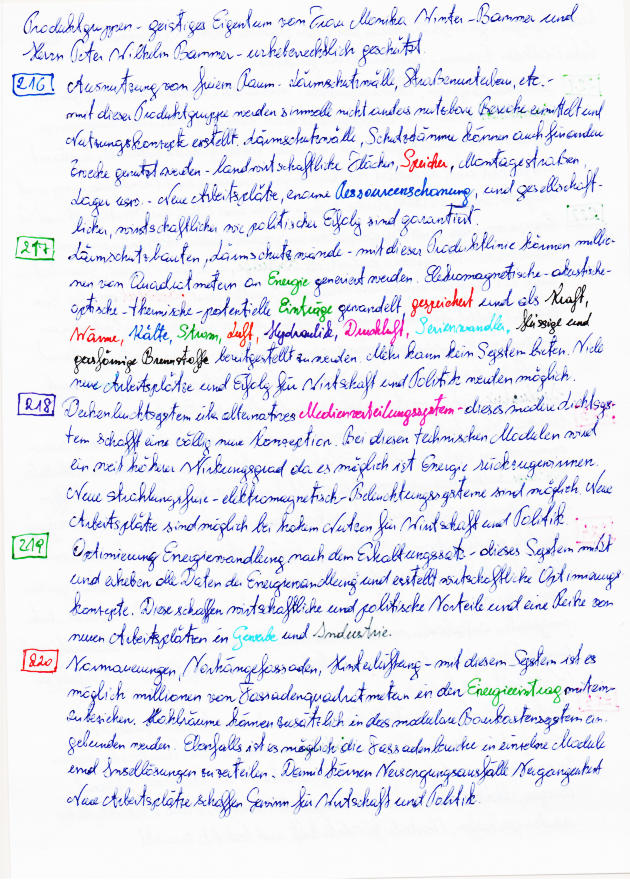 Produktgruppen - geistiges Eigentum von Frau Monika Winter-Bammer und
Herrn Peter Wilhelm Bammer - urheberrechtlich geschützt.
216 Ausnutzung von freiem Raum - Lärmschutzwälle, Straßenunterbau, etc. -
mit dieser Produktgruppe werden sinnvolle nicht anders nutzbare Bereiche ermittelt und
Nutzungskonzepte erstellt. Lärmschutzwälle, Schutzdämme können auch für andere
Zwecke genutzt werden - landwirtschaftliche Flächen, Speicher, Montagestraßen,
Lager usw. - Neue Arbeitsplätze, enorme Ressourcenschonung, und gesellschaft-
licher, wirtschaftlicher wie politischer Erfolg sind garantiert.
217 Lärmschutzbauten, Lärmschutzwände - mit dieser Produktlinie können millio-
nen von Quadratmetern an Energie generiert werden. Elektromagnetische - akustische -
optische - thermische - potentielle Einträge gewandelt, gespeichert und als Kraft,
Wärme, Kälte, Strom, Luft, Hydraulik, Druckluft, Serienwandler, flüssige und
gasförmige Brennstoffe bereitgestellt zu werden. Mehr kann kein System bieten. Viele
neue Arbeitsplätze und Erfolg für Wirtschaft und Politik werden möglich.
218 Deckenlichtsystem alternatives Medienverteilungssystem - dieses modulare Lichtsys-
tem schafft eine völlig neue Konzeption. Bei diesen technischen Modulen wird
ein weit höherer Wirkungsgrad da es möglich ist Energie rückzugewinnen.
Neue strahlungsfreie - elektromagnetisch - Beleuchtungssysteme sind möglich. Neue
Arbeitsplätze sind möglich bei hohem Nutzen für Wirtschaft und Politik
219 Optimierung Energiewandlung nach dem Erhaltungssatz - dieses System misst
und erheben alle Daten der Energiewandlung und erstellt wirtschaftliche Optimierungs
konzepte. Diese schaffen wirtschaftliche und politische Vorteile und eine Reihe von
neuen Arbeitsplätzen in Gewerbe und Industrie.
220 Vormauerungen, Vorhängefassaden, Hinterlüftung - mit diesem System ist es
möglich millionen von Fassadenquadratmetern in den Energieeintrag miteinn-
zubeziehen. Hohlräume können zusätzlich in das modulare Baukastensystem ein
gebunden werden. Ebenfalls ist es möglich die Fassadenbauche in einzelne Module
und Insellösungen zu zerteilen. Damit können Versorgungsausfälle Vergangenheit
Neue Arbeitsplätze schaffen Gewinn für Wirtschaft und Politik.